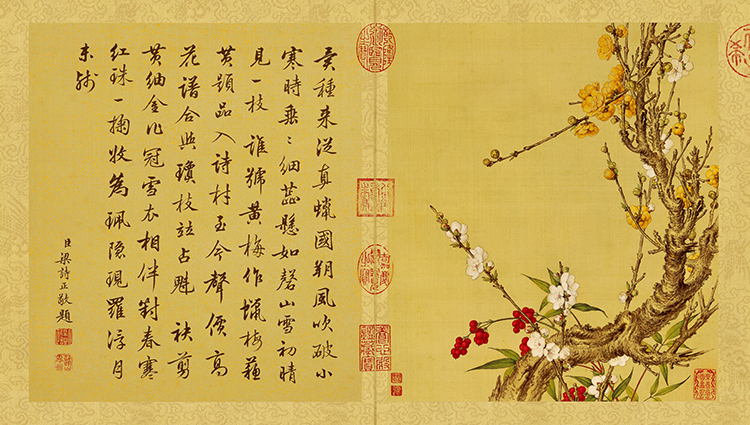 異種来從真蠟國朔風吹破小
寒時垂〻細蕊懸如磬山雪初晴
見一枝誰號黃梅作蠟梅蘓
黃題品入詩材至今聲價高
花譜合與瓊枝竝占魁 袂剪
黃紬金作冠雪衣相伴對春寒
紅珠一掬收為珮隠現羅浮月
未殘
臣梁詩正敬題